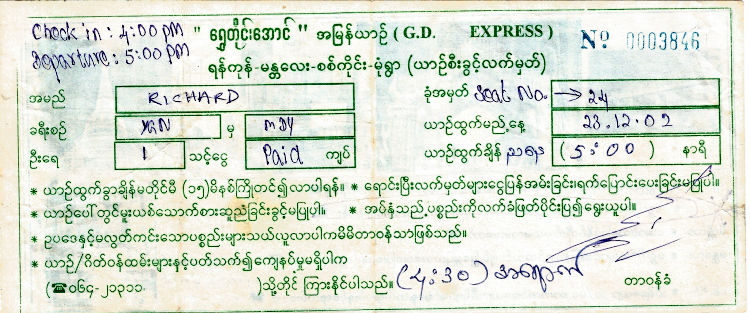 Check in : 4:00 pm
Departure : 5:00 pm
" ရွှေတိုင်းအောင် " အမြန်ယာဉ် ( G.D. EXPRESS )
Nº 0003846
ရန်ကုန်-မန္တလေး-စစ်ကိုင်း-မုံရွာ (ယာဉ်စီးခွင့်လက်မှတ်)
အမည် RICHARD ခုံအမှတ် Seat No. → 24
ခရီးစဉ် YGN မှ MDY ယာဉ်ထွက်မည့်နေ့ 23.12.02
ဦးရေ 1 သင့်ငွေ Paid ကျပ် ယာဉ်ထွက်ချိန် ညနေ (5:00) နာရီ
* ယာဉ်ထွက်ခွာချိန်မတိုင်မီ (၁၅)မိနစ်ကြိုတင်၍လာပါရန်။ * ရောင်းပြီးလက်မှတ်များငွေပြန်အမ်းခြင်း၊ရက်ပြောင်းပေးခြင်းမပြုပါ။
* ယာဉ်ပေါ်တွင်မူးယစ်သောက်စားဆူညံခြင်းခွင့်မပြုပါ။ * အပ်နှံသည့်ပစ္စည်းကိုလက်ခံဖြတ်ပိုင်းပြ၍ရွေးယူပါ။
* ဥပဒေနှင့်မလွတ်ကင်းသောပစ္စည်းများသယ်ယူလာပါကမိမိတာဝန်သာဖြစ်သည်။
* ယာဉ်/ဂိတ်ဝန်ထမ်းများနှင့်ပတ်သက်၍ကျေနပ်မှုမရှိပါက
(☎၀၆၄-၂၁၃၁၁ )သို့တိုင်ကြားနိုင်ပါသည်။ (4:30) အရောက် တာဝန်ခံ